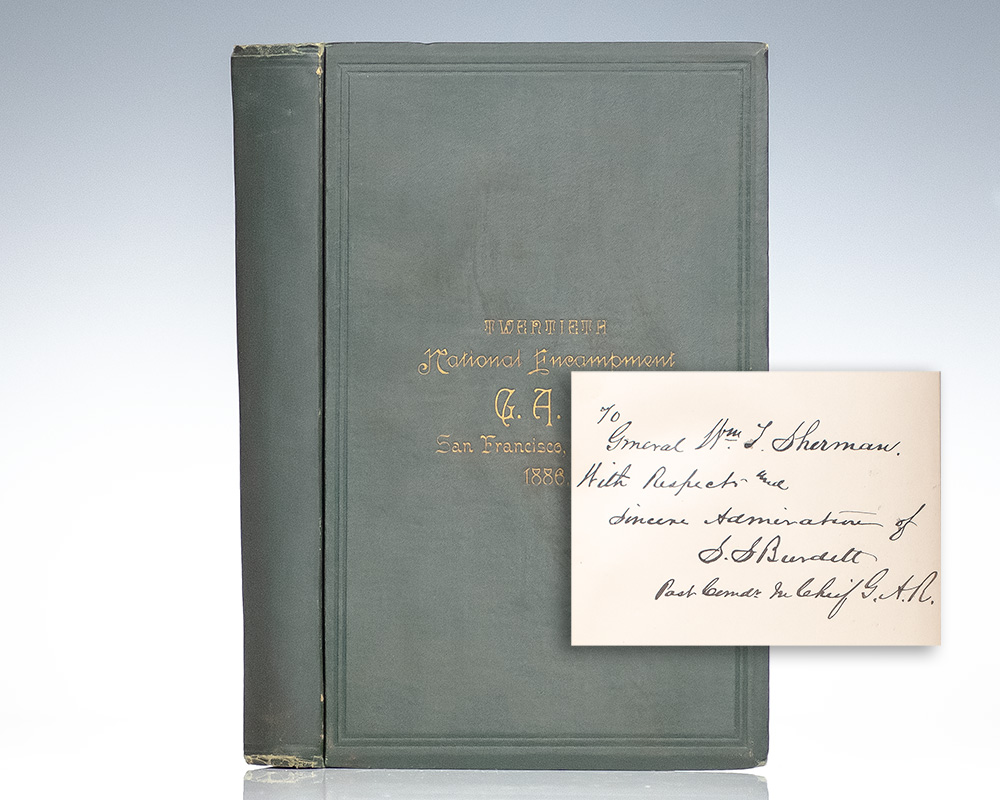 TWENTIETH
National Encampment
G. A.
San Francisco,
1886.
To
General Wm. T. Sherman.
With Respects and
Sincere Admiration of
S. S. Burdett
Past Comdr. In Chief G. A. R.